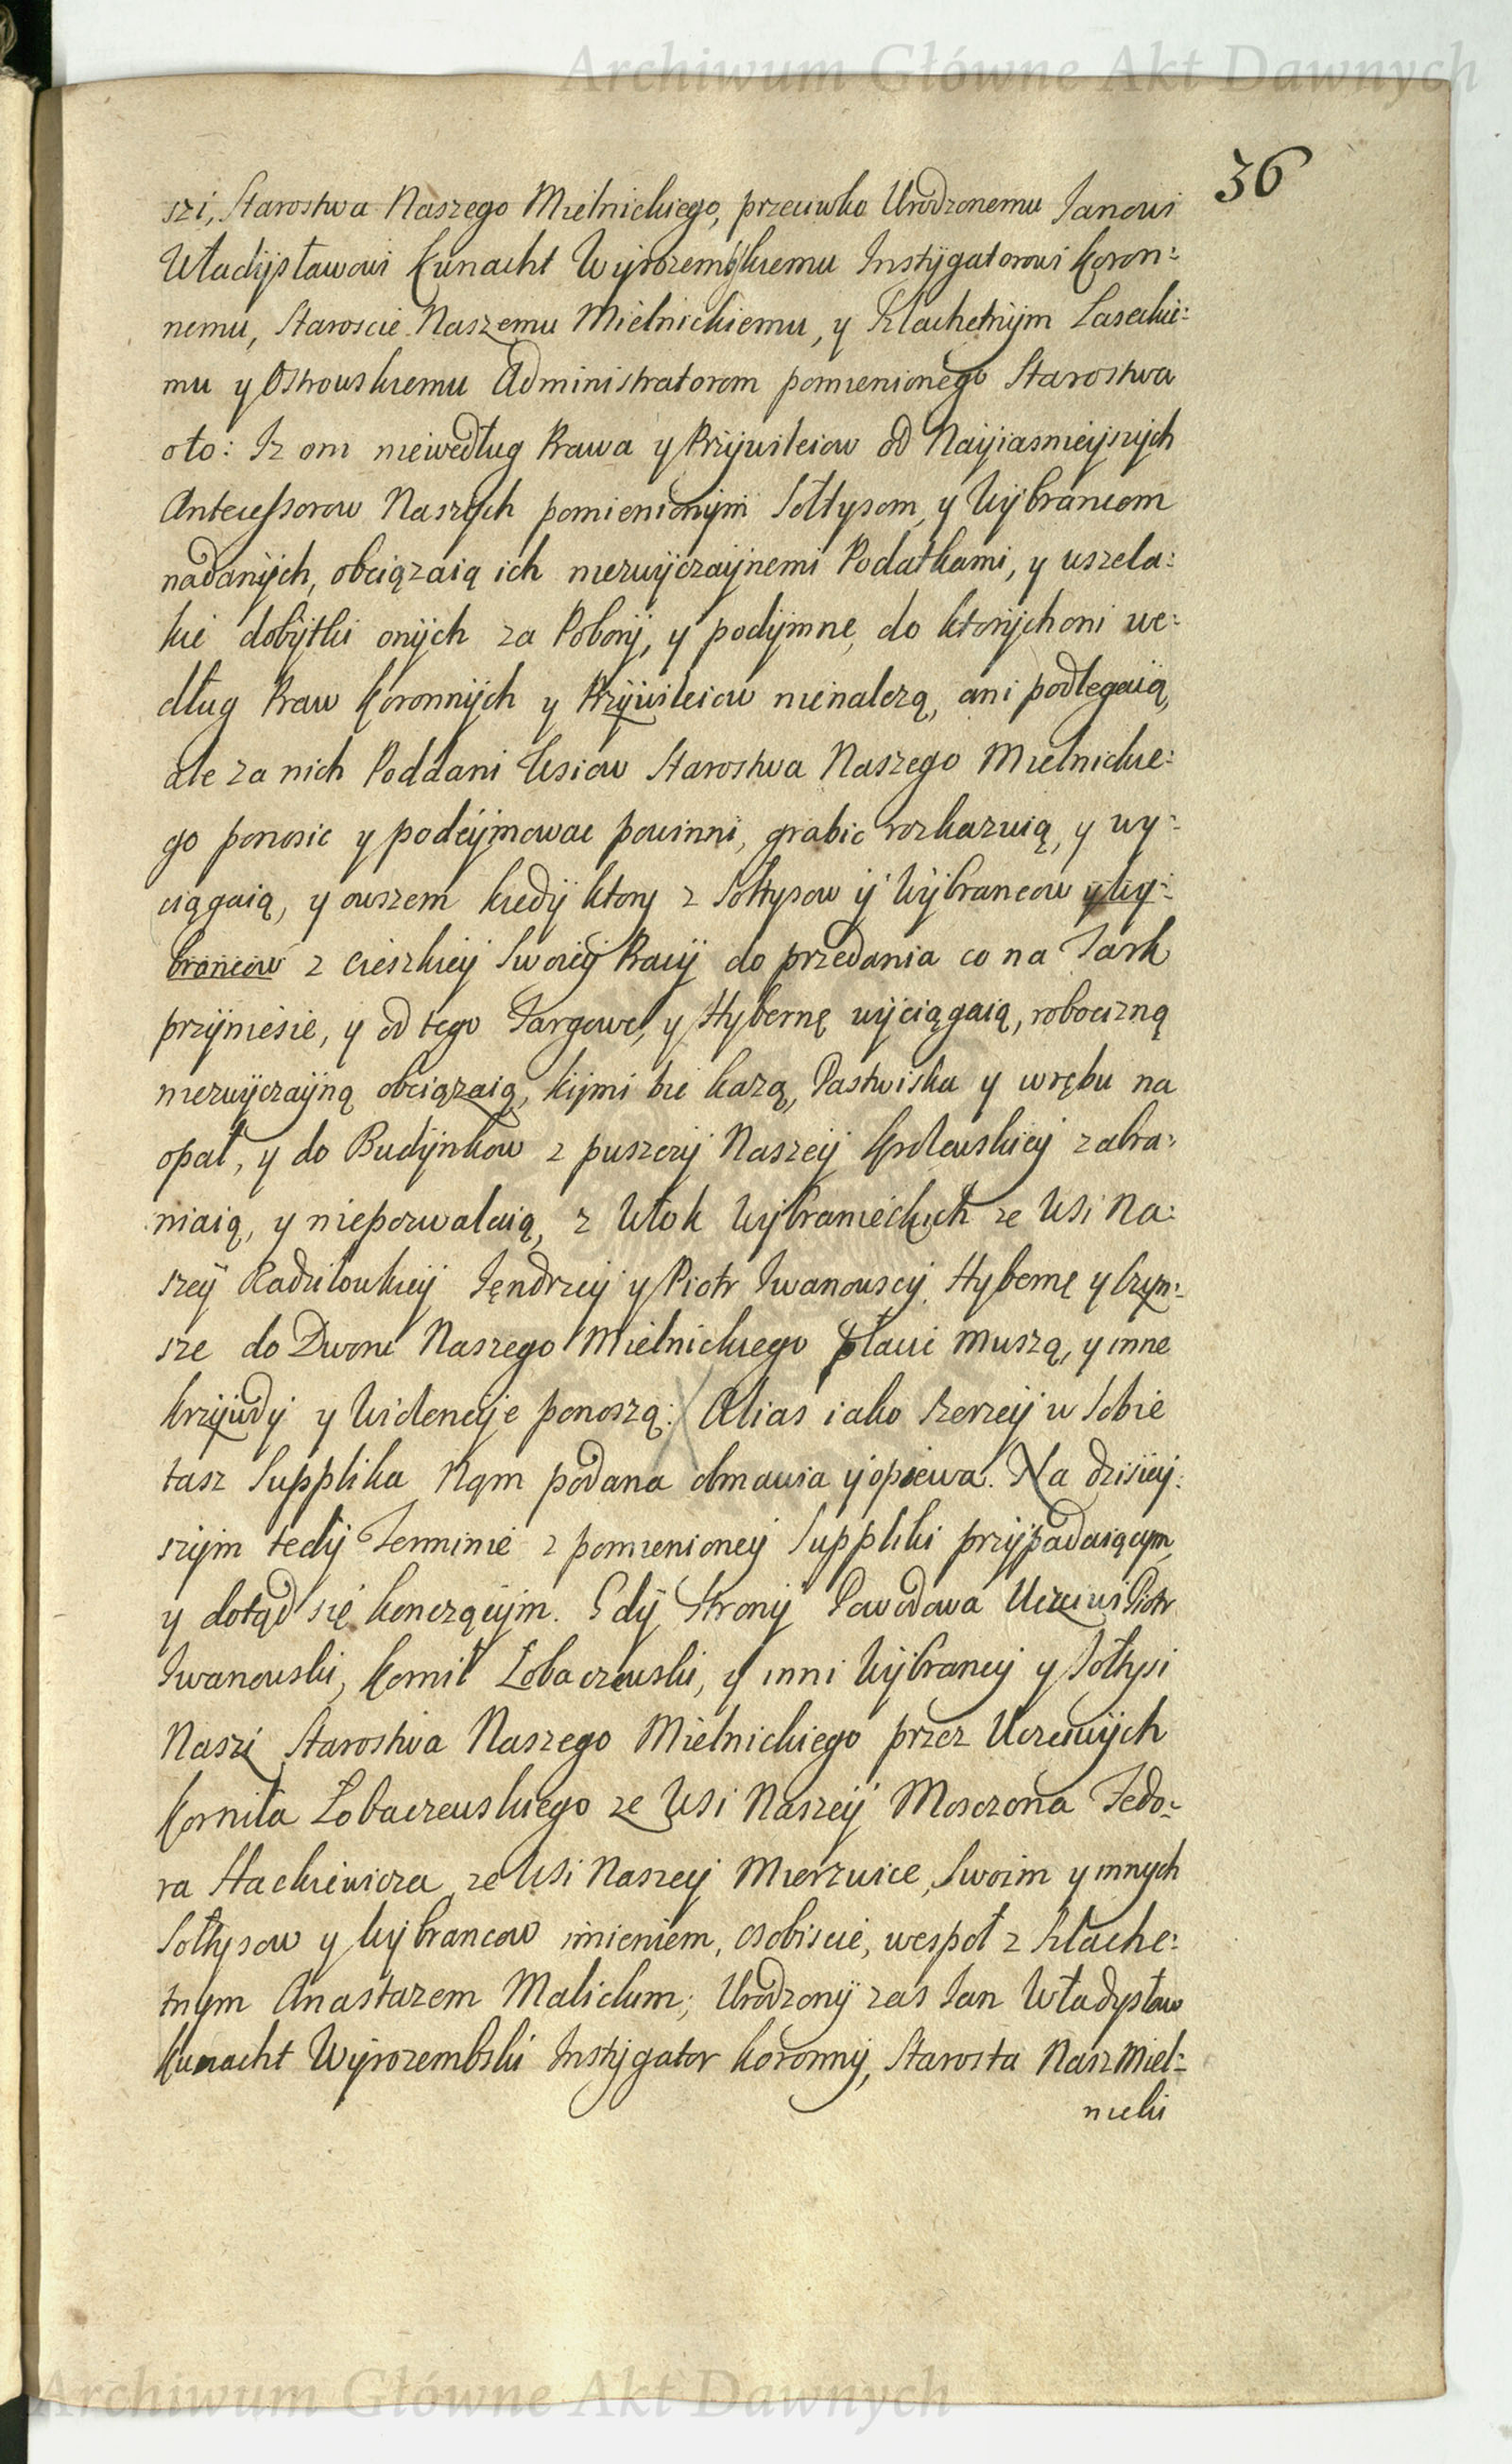 Archiwum Główne Akt Dawnych
36
szi, Starostwa Naszego Mielnickiego, przeciwko Urodzonemu Janowi
Władysławowi Kunacht Wyrozembskiemu Instygatorowi Koron:
nemu, Staroscie Naszemu Mielnickiemu, y Szlachetnym Laseckie:
mu y Ostrowskiemu Administratorom pomienionego Starostwa
oto: Iz oni niewedług Prawa y Przywileiow od Nayiasnieyszych
Antecessorow Naszych pomienionym Sołtysom y Wybrancom
nadanych, obciązaią ich niezwyczaynemi Podatkami, y wszela:
kie dobytki onych za Pobory, y podymne, do ktorych oni we:
dług Praw Koronnych y Przywileiow nienalezą, ani podlegaią,
ale za nich Poddani Wsiow Starostwa Naszego Mielnickie:
go ponosic y podeymowac powinni, grabic rozkazuią, y wy:
ciągaią, y owszem kiedy ktory z Sołtysow y Wybrancow y Wy:
brancow z cieszkiey Swoiey Pracy do przedania co na Tark
przyniesie, y od tego Targowe, y Hybernę wyciągaią, robocizną
niezwyczayną obciązaią, kiymi bic kazą, Pastwiska y wrębu na
opał, y do Budynkow z puszczy Naszey Krolewskiey zabra:
niaią, y niepozwalaią, z Włok Wybranieckich ze Wsi Na:
szey Radziłowkiey Jęndrzey y Piotr Iwanowscy Hybernę y Czyn:
sze do Dworu Naszego Mielnickiego płacic muszą, y inne
krzywdy y Wiolencye ponoszą: Alias iako szerzey w Sobie
tasz Supplika Nam podana obmawia y opiewa. Na dzisiey:
szym tedy Terminie z pomienioney Suppliki przypadaiącym,
y dotąd się konczącym. Gdy Strony Powodowa Uczciwi Piotr
Iwanowski, Kornił Łobaczewski, y inni Wybrancy y Sołtysi
Naszi Starostwa Naszego Mielnickiego przez Uczciwych
Korniła Łobaczewskiego ze Wsi Naszey Moszczona Fedo:
ra Hackiewicza ze Wsi Naszey Mierzwice, Swoim y innych
Sołtysow y Wybrancow imieniem, osobiscie, wespoł z Szlache:
tnym Anastazem Malickim; Urodzony zas Jan Władysław
Kunacht Wyrozembski Instygator Koronny, Starosta Nasz Miel:
nicki
Archiwum Główne Akt Dawnych